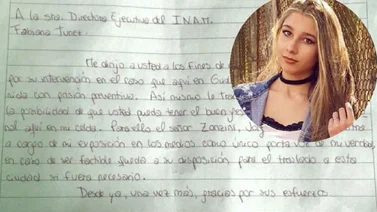 A la sra. Directora Ejecutiva del I.N.A.M.
Fabiana Tuñez.
Me dirijo a usted a los fines de
por su intervención en el caso que aquí en Gua
nida con prisión preventiva. Así mismo la
la posibilidad de que usted pueda tener el buen
nal aquí en mi celda. Para ello el señor Zonzini, Jorg
a cargo de mi exposición en los medios como único porta voz de mi verdad,
en caso de ser factible queda a su disposición para el traslado a esta
ciudad si fuera necesario.
Desde ya, una vez más, gracias por sus esfuerzos